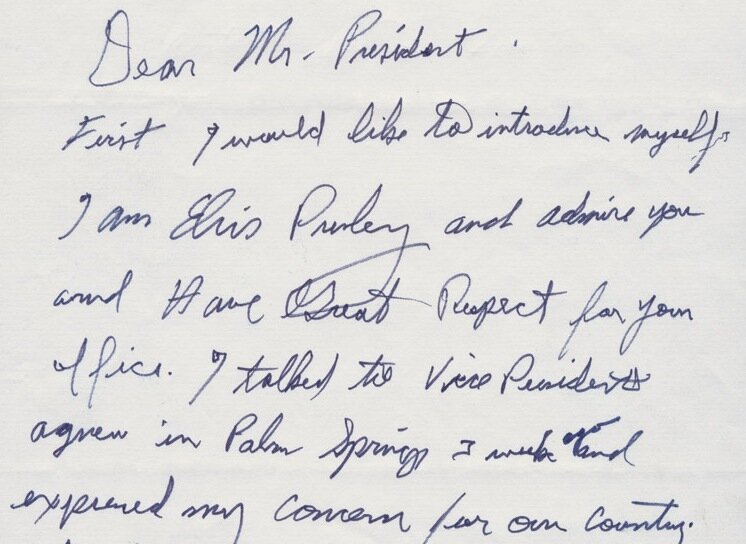 Dear Mr. President.
First I would like to introduce myself.
I am Elvis Presley and admire you
and Have Great Respect for your
office. I talked to Vice President
agnew in Palm Springs I week and
expressed my concern for our country.